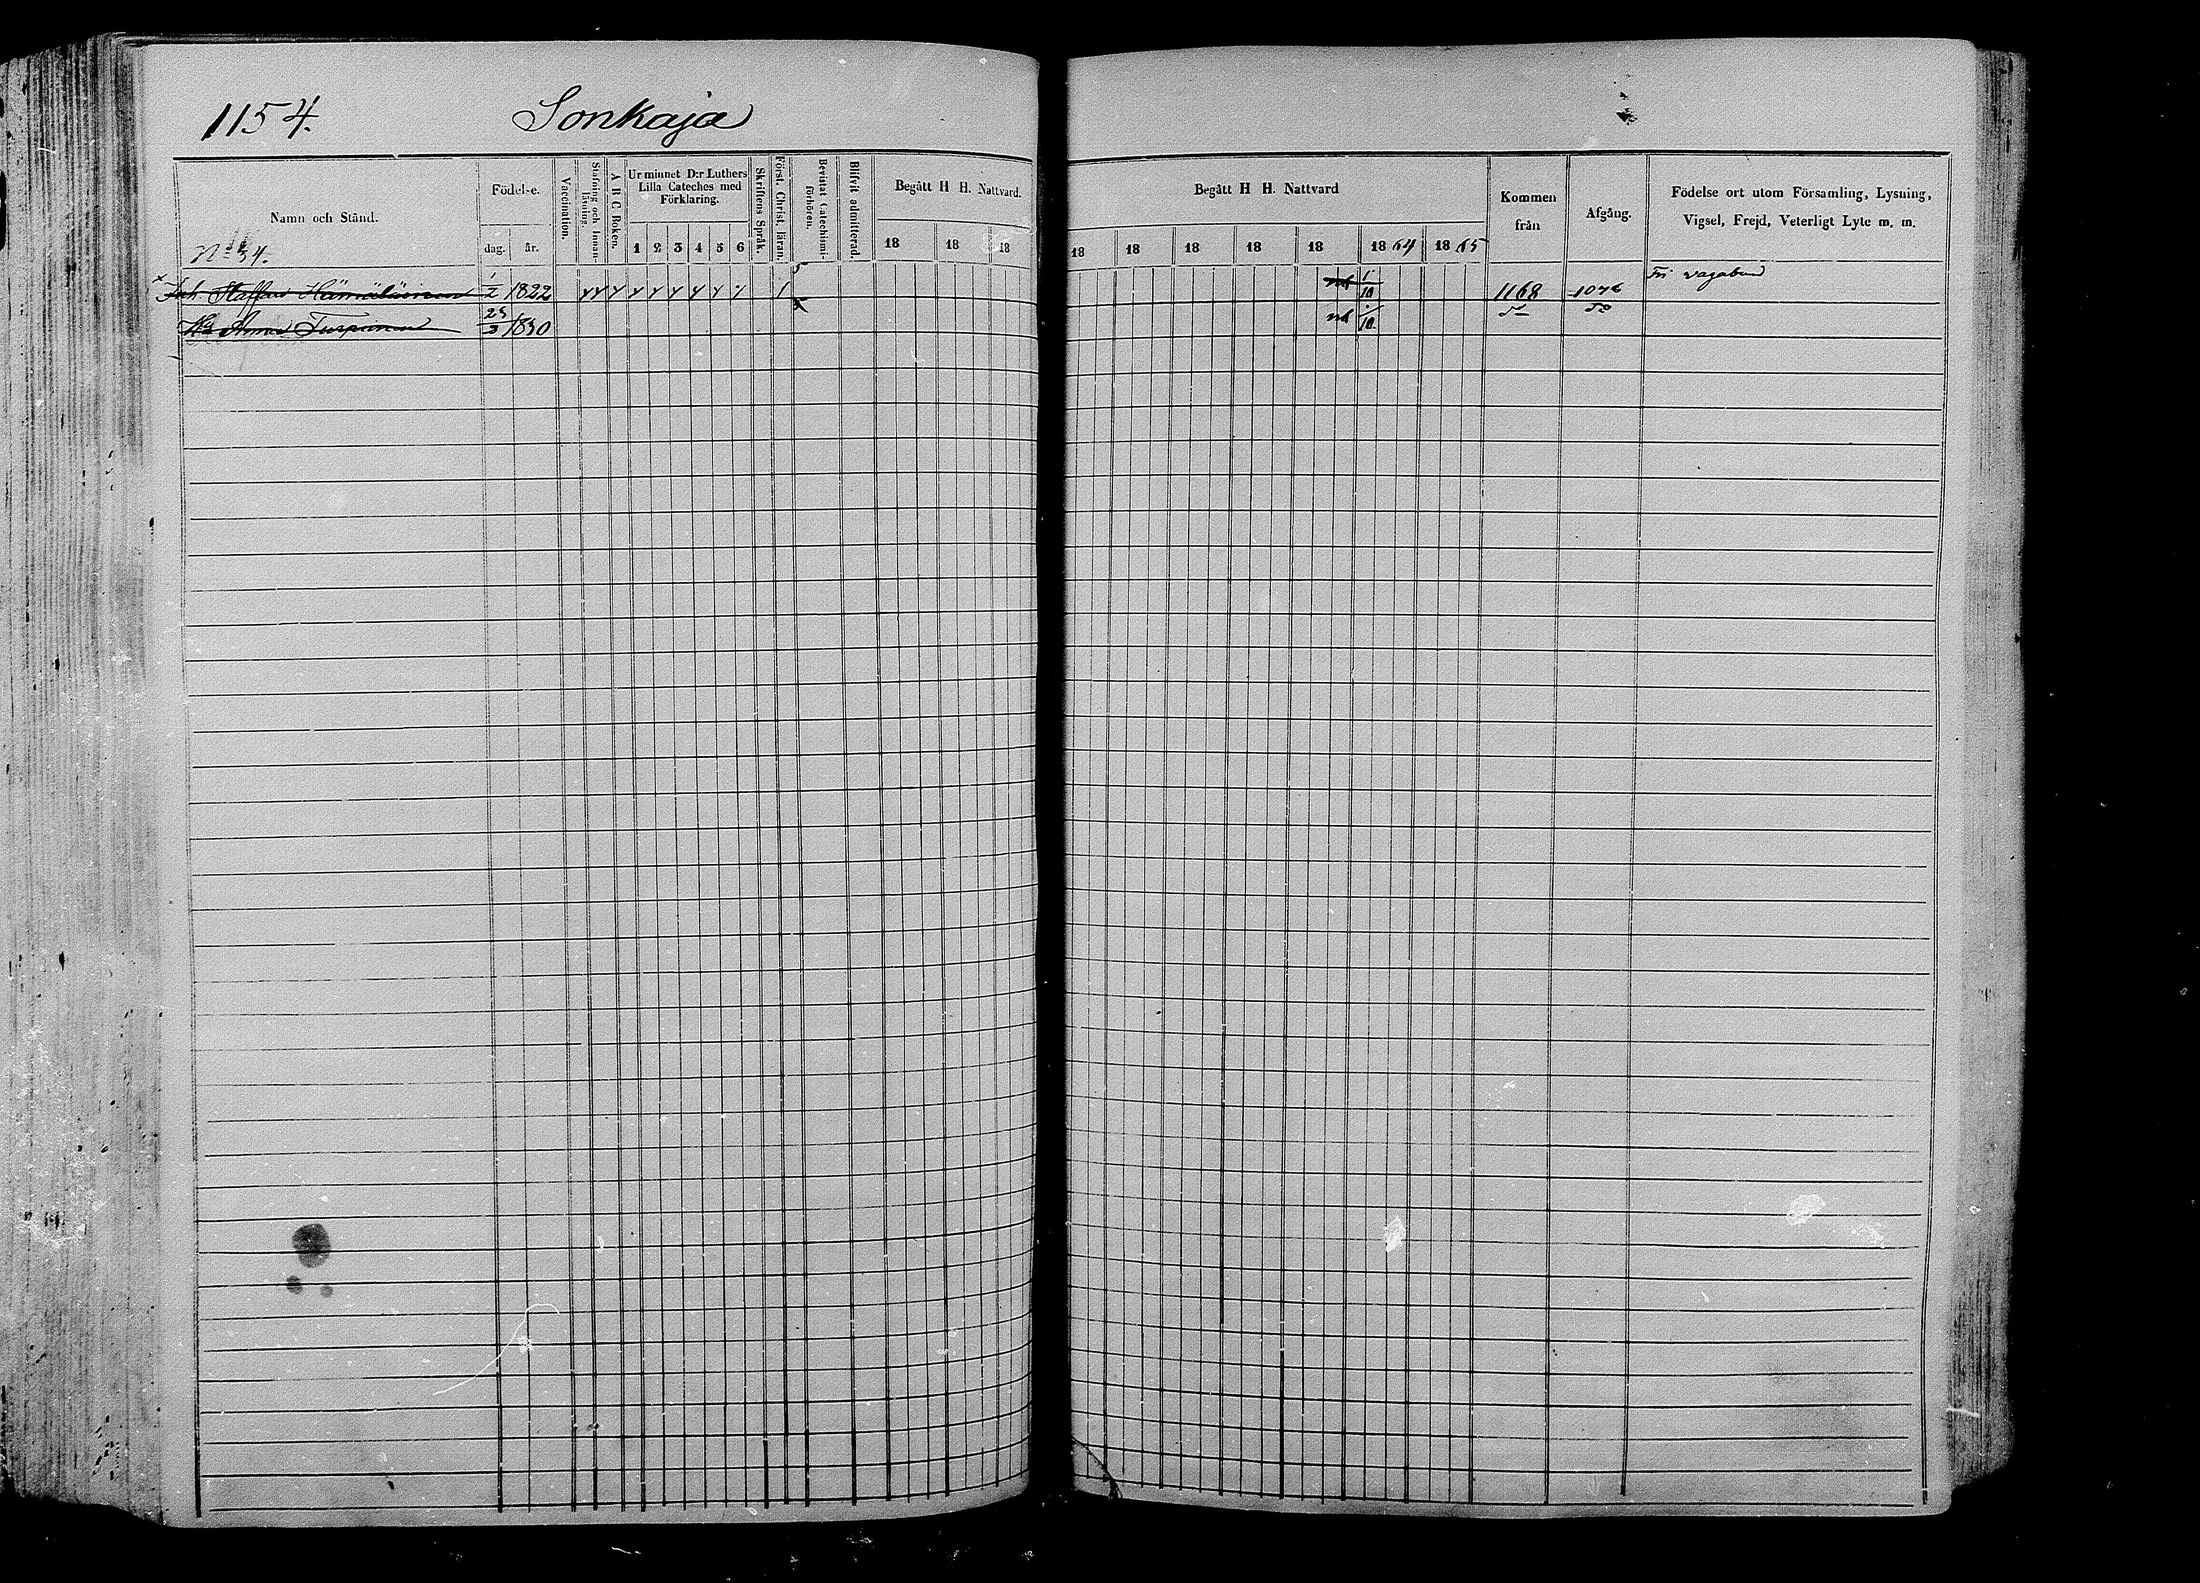 1154. Sonkaja
Namn och Stånd.
Födelse.
dag. år.
Vaccination.
Stafning och Innan-
läsning.
A B C. Boken.
Ur minnet D:r Luthers
Lilla Cateches med
Förklaring.
1 2 3 4 5 6
Skriftens Språk.
Först. Christ. läran.
Bevistat Catechismi-
förhören.
Blifvit admitterad.
Begått H H. Nattvard.
18 18 18
Begått H H. Nattvard
18 18 18 18 18 1864 1865
Kommen
från
Afgång.
Födelse ort utom Församling, Lysning,
Vigsel, Frejd, Veterligt Lyte m. m.
No 34.
Inh. Staffan Hämäläinen 1/2 1822 1/10 1168 1076 Fri vagabund
Hu Anna Turpeinen 25/3 1830 /10 do do